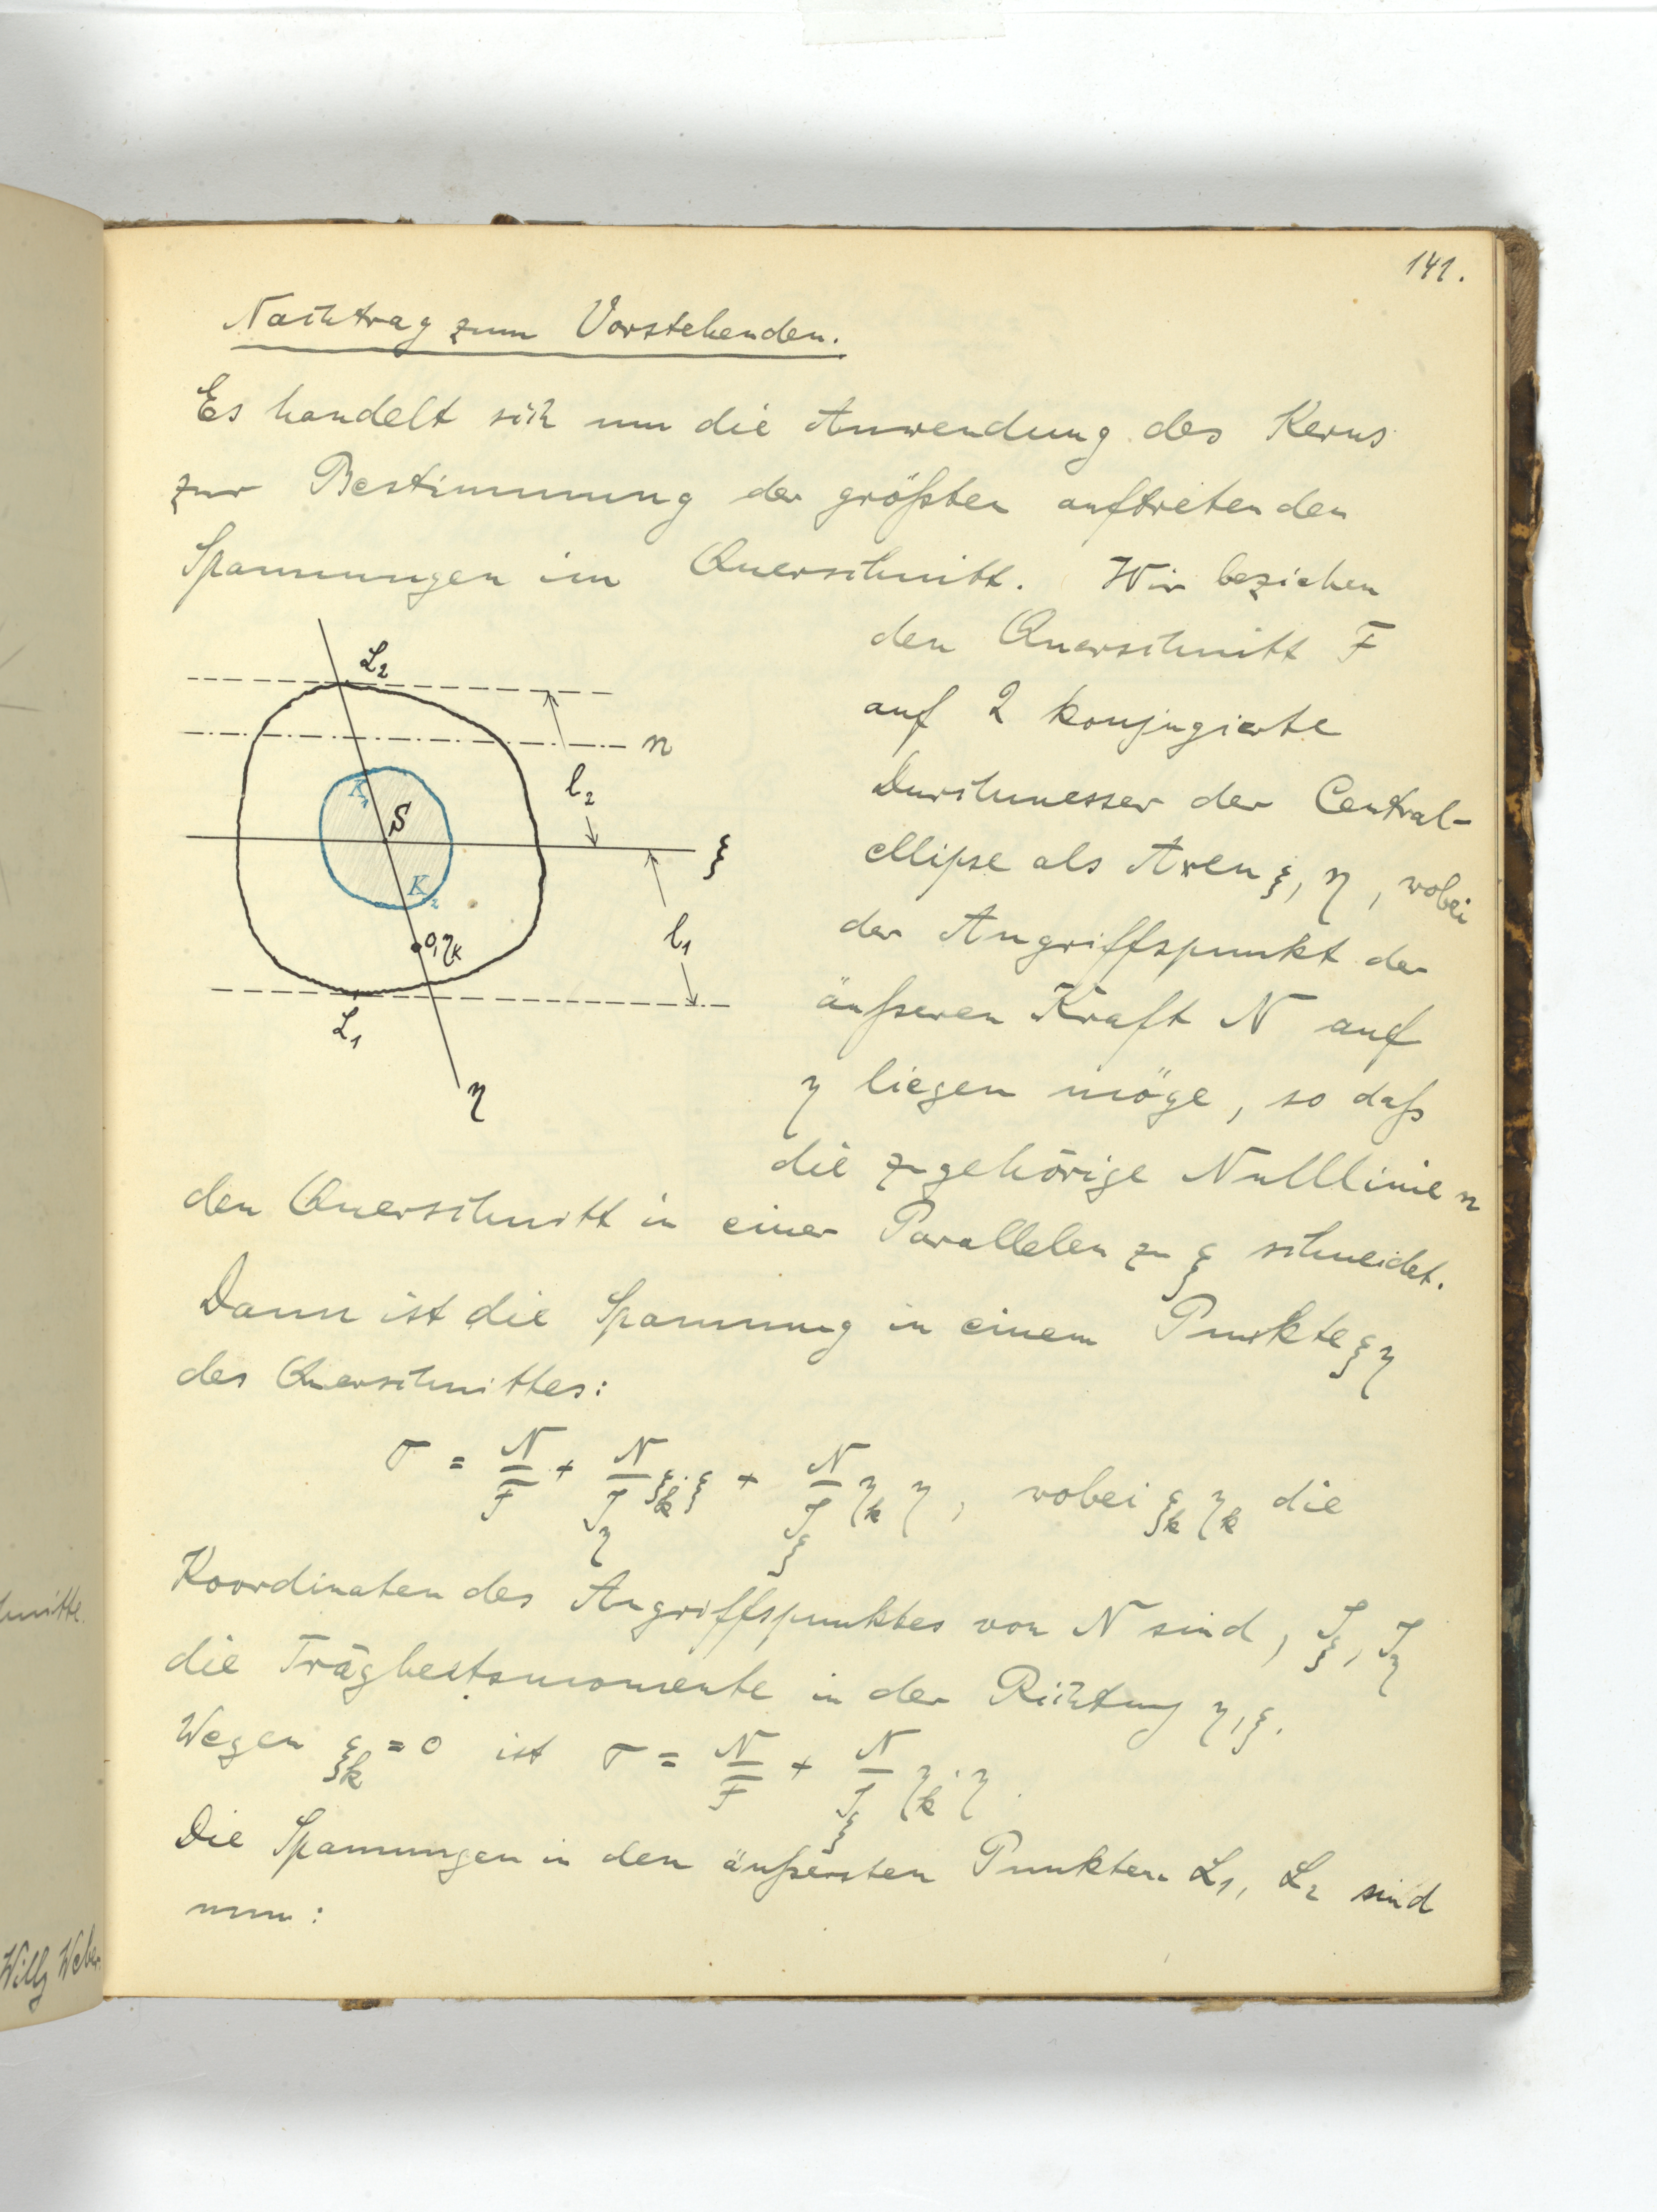 141.
Nachtrag zum Vorstehenden.
Es handelt sich um die Anwendung des Kerns
zur Bestimmung der größten auftretenden
Spannungen im Querschnitt. Wir beziehen
den Querschnitt F
auf 2 konjugierte
Durchmesser der Central-
ellipse als Axen ξ, η, wobei
der Angriffspunkt der
äußeren Kraft N auf
η liegen möge, so daß
die zugehörige Nulllinie n
L₂
n
l₂
K₁
S
ξ
K₂
l₁
0,ηk
L₁
η
den Querschnitt in einer Parallelen zu ξ schneidet.
Dann ist die Spannung in einem Punkte ξ η
des Querschnittes:
σ = N/F + N/J_η ξ_k·ξ + N/J_ξ η_k η, wobei ξ_k η_k die
Koordinaten des Angriffspunktes von N sind, J_ξ, J_η
die Trägheitsmomente in der Richtung η, ξ.
Wegen ξ_k = 0 ist σ = N/F + N/J_ξ η_k·η.
Die Spannungen in den äußersten Punkten L₁, L₂ sind
nun:
Willy Weber